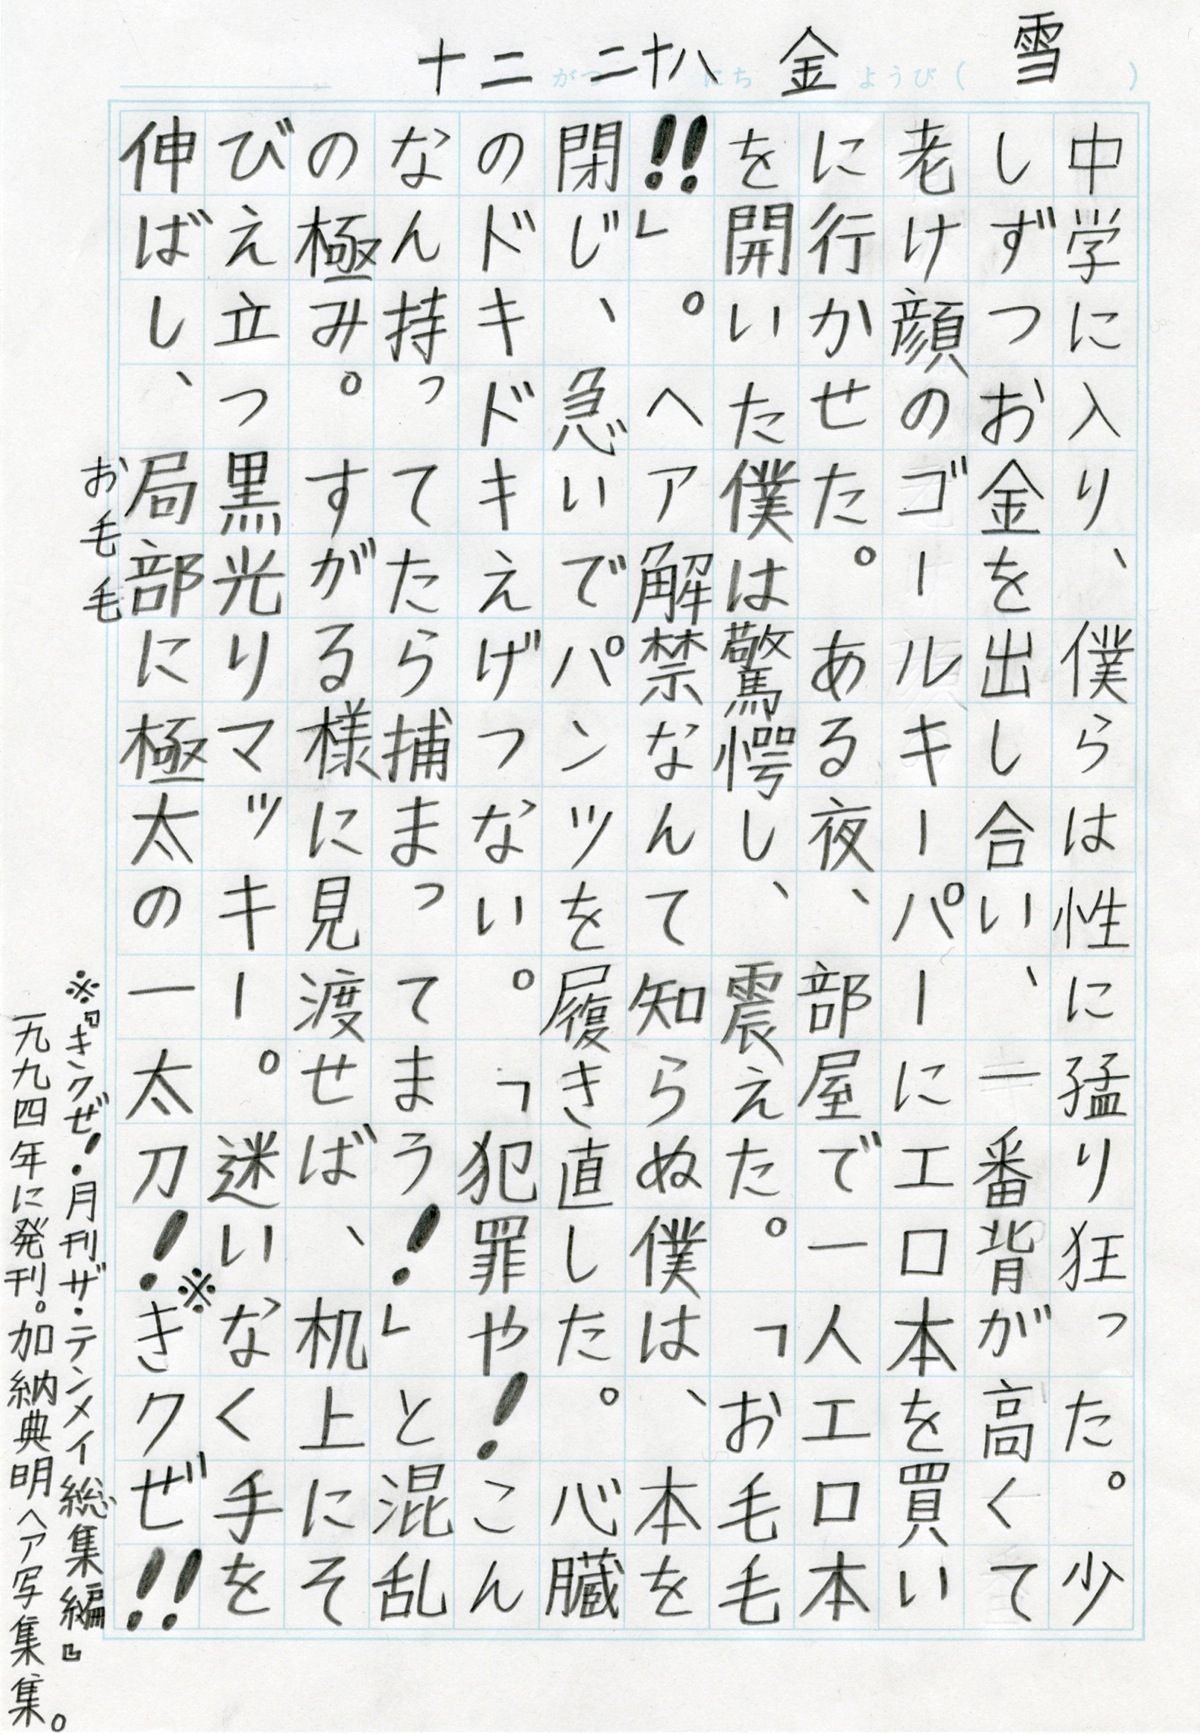 十二 がつ 二十八 にち 金 ようび( 雪 )
中学に入り、僕らは性に猛り狂った。少
しずつお金を出し合い、一番背が高くて
老け顔のゴールキーパーにエロ本を買い
に行かせた。ある夜、部屋で一人エロ本
を開いた僕は驚愕し、震えた。「お毛毛
!!」。ヘア解禁なんて知らぬ僕は、本を
閉じ、急いでパンツを履き直した。心臓
のドキドキえげつない。「犯罪や!こん
なん持ってたら捕まってまう!」と混乱
の極み。すがる様に見渡せば、机上にそ
びえ立つ黒光りマッキー。迷いなく手を
伸ばし、局部に極太の一太刀!※きクぜ!!
お毛毛
※『きンクぜ!・月刊ザ・テンメイ総集編』
一九九四年に発刊。加納典明ヘア写集集。